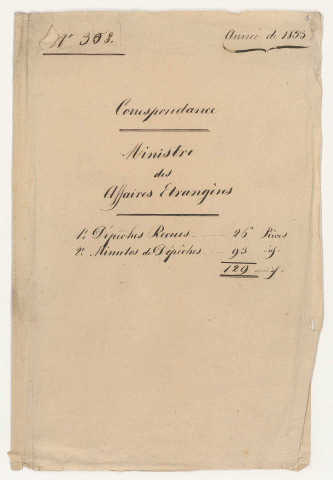 N° 308.
Année de 1833
Correspondance
Ministre
des
Affaires Etrangères
1° Dépêches Recues 26 Pièces
2° Minutes de Dépêches 93 id.
129 id.